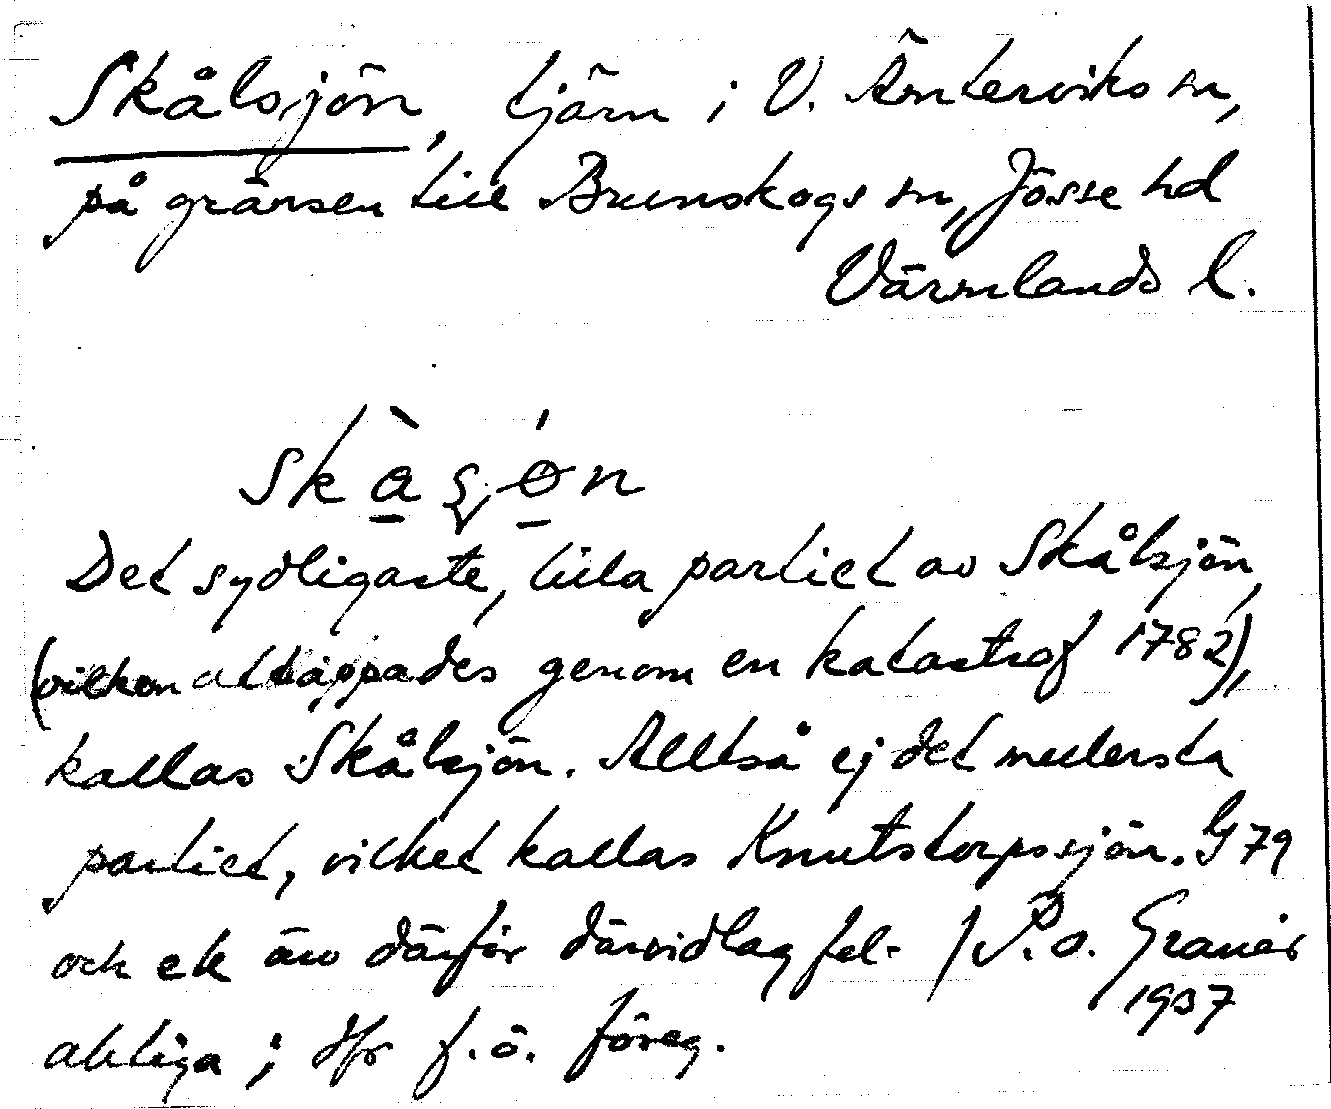 Skålsjön, tjärn i V. Ämterviks sn,
på gränsen till Brunskogs sn, Jösse hd
Värmlands l.
Skàʂǿn
Det sydligaste, lilla partiet av Skålsjön,
(vilken alltäppades genom en katastrof 1782),
kallas Skålsjön. Alltså ej det mellersta
partiet, vilket kallas Knutstorpssjön. G 79
och ek äro därför därvidlag fel-
aktiga; jfr f.ö. föreg.
/ P.O. Granér
1937